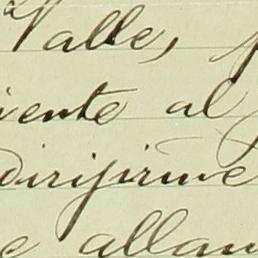 Valle,
iente al
dirijirme
e allan